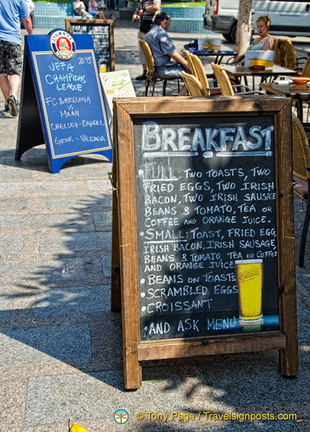 UEFA
CHAMPIONS
LEAGUE
20:45
FC BARCELONA
MANU
CHELSEA -
- VALENCIA
BREAKFAST
• FULL, TWO TOASTS, TWO
FRIED EGGS, TWO IRISH
BACON, TWO IRISH SAUSAGE
BEANS & TOMATO, TEA OR
COFFEE AND ORANGE JUICE.
• SMALL: TOAST, FRIED EGG,
IRISH BACON, IRISH SAUSAGE,
BEANS & TOMATO, TEA OR COFFEE
AND ORANGE JUICE.
• BEANS ON TOASTS
• SCRAMBLED EGGS
• CROISSANT
• AND ASK MENU
© Tony Page / Travelsignposts.com